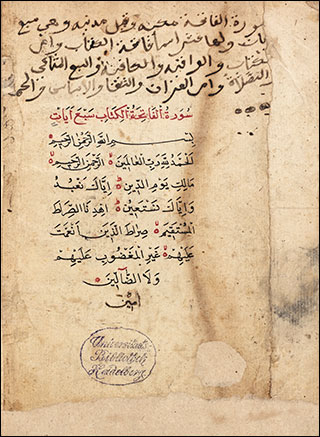 سورة الفاتحة مكية وقيل مدنية وهي سبع
ايات ولها عشر اسما فاتحة الكتاب وام
الكتاب والوافية والكافية والسبع المثاني
والصلاة وام القران والشفا والاساس والحمد
سُورَةُ الفَاتِحَةُ الْكِتَابِ سَبْعَ آيَاتٍ
بِسْمِ اللهِ الرَّحْمٰنِ الرَّحِيمِ
اَلْحَمْدُ لِلّٰهِ رَبِّ الْعَالَمِينَ الرَّحْمٰنِ الرَّحِيمِ
مَالِكِ يَوْمِ الدِّينِ إِيَّاكَ نَعْبُدُ
وَإِيَّاكَ نَسْتَعِينُ اِهْدِنَا الصِّرَاطَ
الْمُسْتَقِيمَ صِرَاطَ الَّذِينَ أَنْعَمْتَ
عَلَيْهِمْ غَيْرِ الْمَغْضُوبِ عَلَيْهِمْ
وَلَا الضَّالِّينَ
اٰمِيْن
Universitäts-
Bibliothek
Heidelberg.